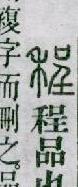 程程品也
複字而刪之品